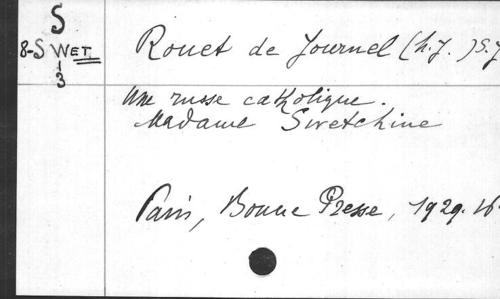 S
8-S WET
1
3
Rouet de Journel (h.J.) S.J
Une russe catholique.
Madame Swetchine
Paris, Bonne Presse, 1929. 16.